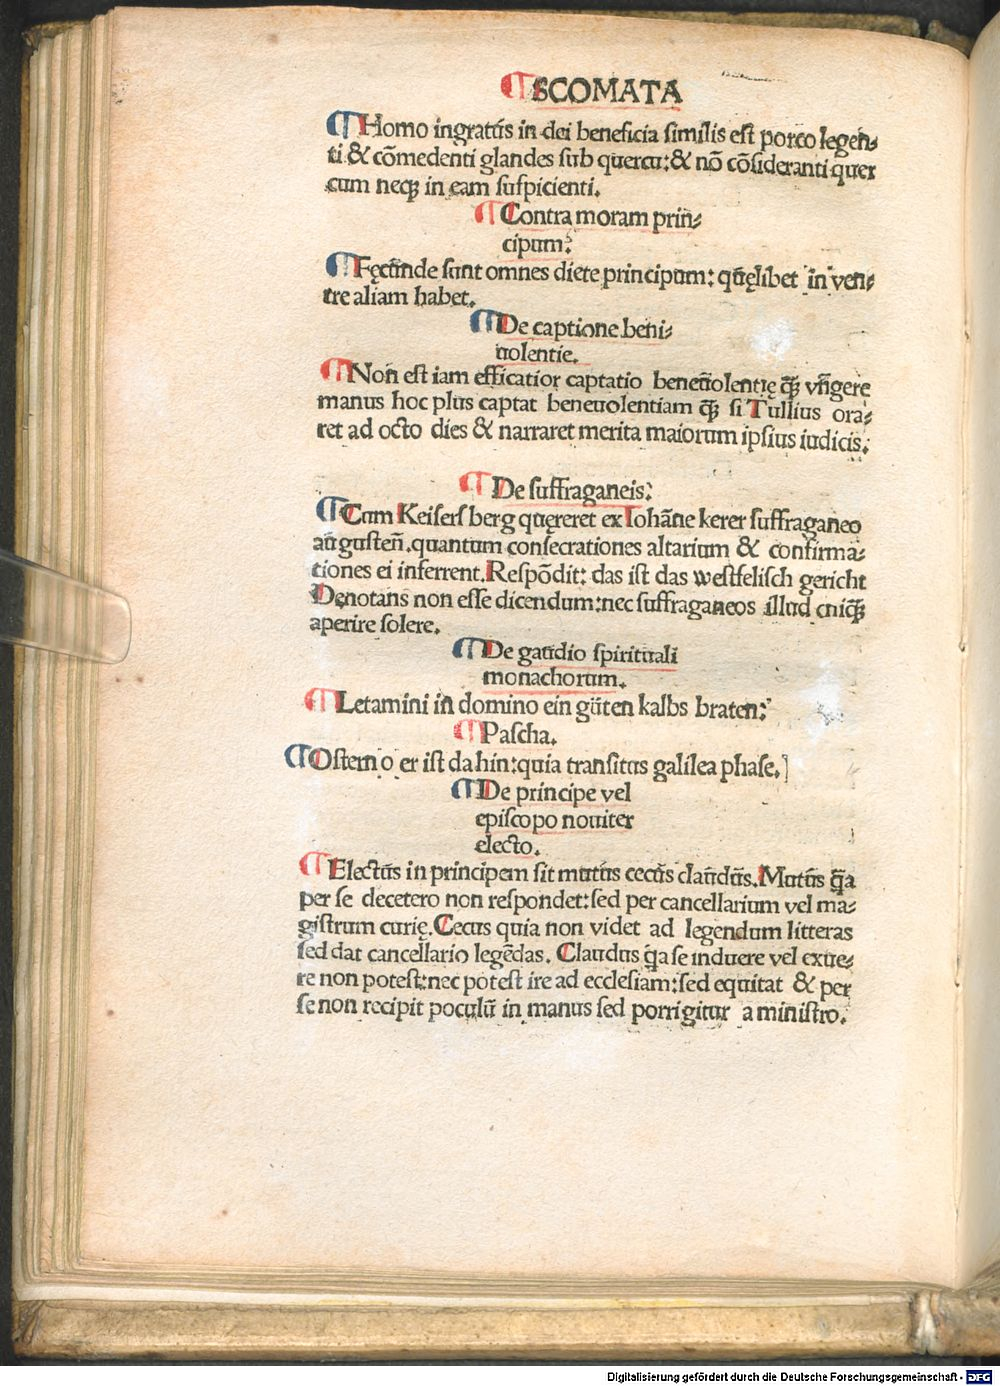 ¶ SCOMATA
¶ Homo ingratus in dei beneficia similis est porco legen⸗
ti & cōmedenti glandes sub quercu: & nō cōsideranti quer
cum neqꝫ in eam suspicienti.
¶ Contra moram prin⸗
cipum:
¶ Fęcūnde sunt omnes diete principum: quęlibet in ven⸗
tre aliam habet.
¶ De captione beni⸗
uolentie.
¶ Non est iam efficatior captatio beneuolentię qꝫ̄ vngere
manus hoc plus captat beneuolentiam qꝫ̄ si Tullius ora⸗
ret ad octo dies & narraret merita maiorum ipsius iudicis:
¶ De suffraganeis:
¶ Cum Keisersberg quęreret ex Iohāne kerer suffraganeo
augusteñ. quantum consecrationes altarium & confirma⸗
tiones ei inferrent. Respōdit: das ist das westfelisch gericht
Denotans non esse dicendum: nec suffraganeos illud cuiqꝫ̄
aperire solere.
¶ De gaudio spirituali
monachorum.
¶ Letamini in domino ein guten kalbs braten:
¶ Pascha.
¶ Ostern o er ist da hin: quia transitus galilea phase.
¶ De principe vel
episcopo nouiter
electo.
¶ Electus in principem sit mutus cecus claudus. Mutus q̄a
per se decetero non respondet: sed per cancellarium vel ma⸗
gistrum curię. Cecus quia non videt ad legendum litteras
sed dat cancellario legēdas. Claudus q̄a se induere vel exue⸗
re non potest: nec potest ire ad ecclesiam: sed equitat & per
se non recipit poculū in manus sed porrigitur a ministro.
Digitalisierung gefördert durch die Deutsche Forschungsgemeinschaft - DFG